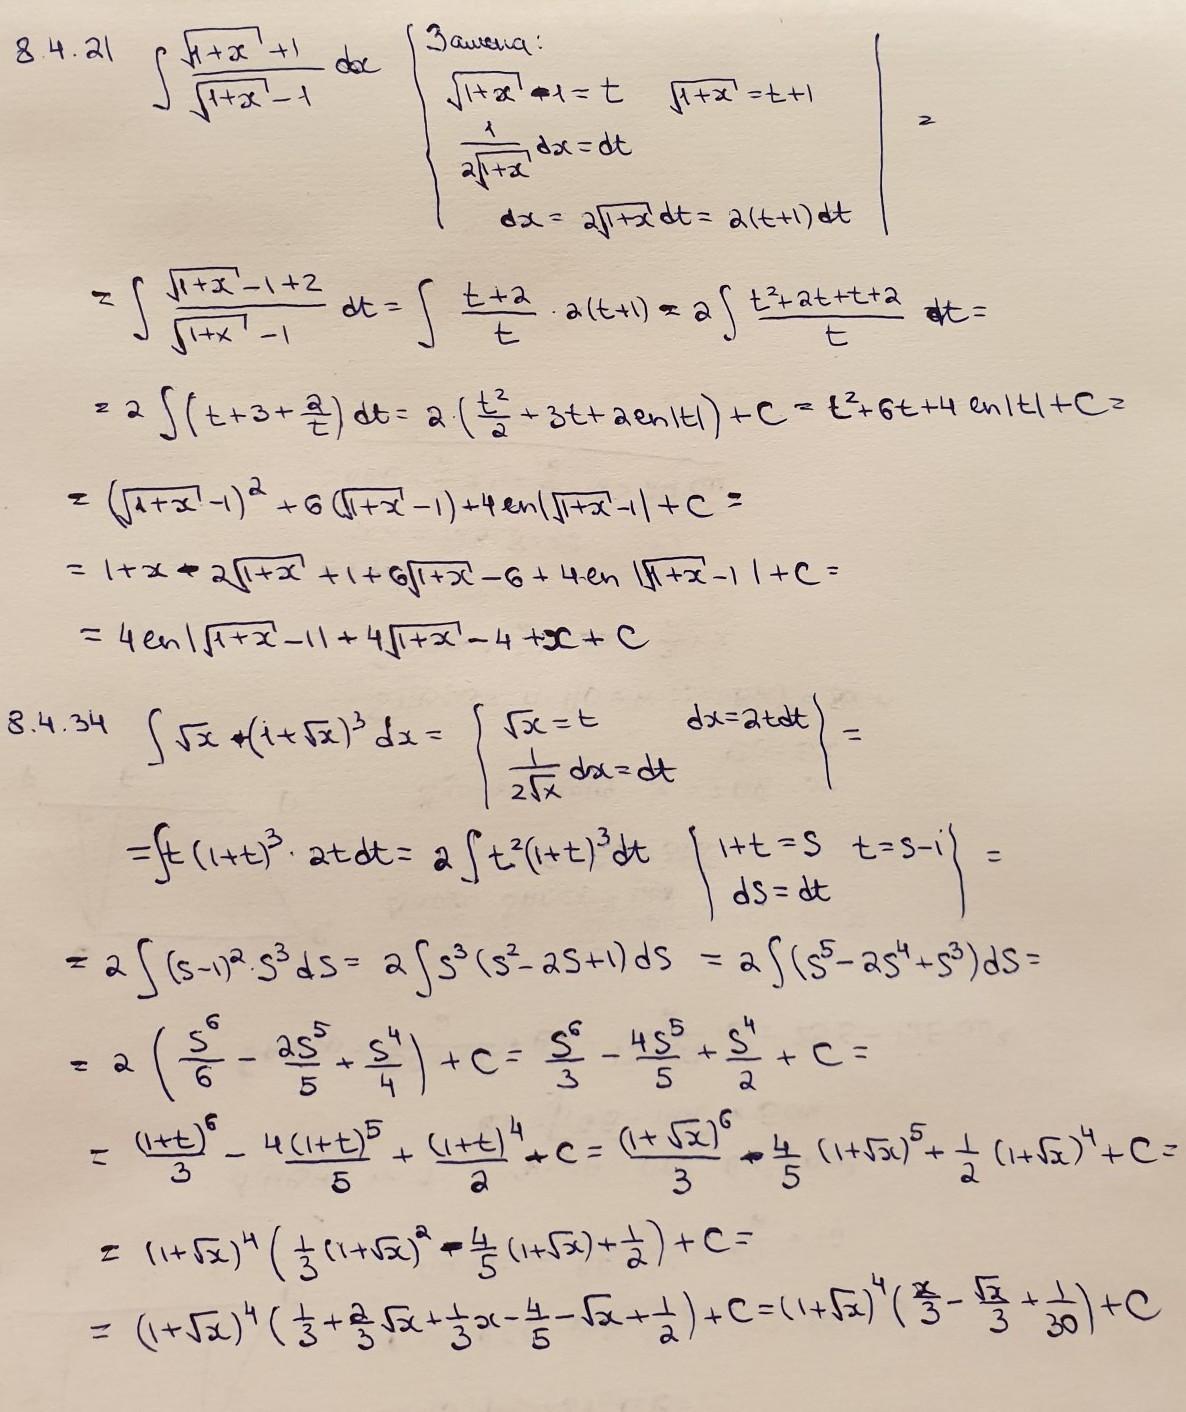 8.4.21 ∫ (√(1+x) + 1)/(√(1+x) − 1) dx { Замена:
√(1+x) − 1 = t √(1+x) = t+1
1/(2√(1+x)) dx = dt
dx = 2√(1+x) dt = 2(t+1)dt | =
= ∫ (√(1+x) − 1 + 2)/(√(1+x) − 1) dt = ∫ (t+2)/t · 2(t+1) = 2∫ (t²+2t+t+2)/t dt =
= 2∫(t+3+2/t)dt = 2·(t²/2 + 3t + 2ln|t|) + C = t²+6t+4 ln|t| + C =
= (√(1+x) − 1)² + 6(√(1+x) − 1) + 4ln|√(1+x) − 1| + C =
= 1+x − 2√(1+x) + 1 + 6√(1+x) − 6 + 4·ln|√(1+x) − 1| + C =
= 4ln|√(1+x) − 1| + 4√(1+x) − 4 + x + C
8.4.34 ∫ √x · (1+√x)³ dx = { √x = t dx = 2tdt
1/(2√x) dx = dt } =
= ∫ t(1+t)³ · 2tdt = 2∫t²(1+t)³dt { 1+t = S t = S−1
dS = dt } =
= 2∫(S−1)²·S³dS = 2∫S³(S²−2S+1)dS = 2∫(S⁵−2S⁴+S³)dS =
= 2(S⁶/6 − 2S⁵/5 + S⁴/4) + C = S⁶/3 − 4S⁵/5 + S⁴/2 + C =
= (1+t)⁶/3 − 4(1+t)⁵/5 + (1+t)⁴/2 + C = (1+√x)⁶/3 − 4/5 (1+√x)⁵ + 1/2 (1+√x)⁴ + C =
= (1+√x)⁴(1/3 (1+√x)² − 4/5 (1+√x) + 1/2) + C =
= (1+√x)⁴(1/3 + 2/3 √x + 1/3 x − 4/5 − √x + 1/2) + C = (1+√x)⁴(x/3 − √x/3 + 1/30) + C